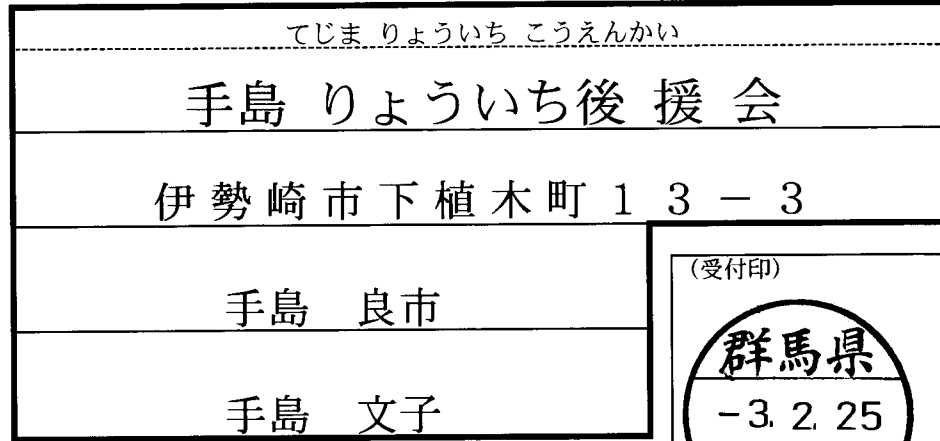 てじま りょういち こうえんかい
手島 りょういち後援会
伊勢崎市下植木町13-3
手島 良市
(受付印)
群馬県
-3. 2. 25
手島 文子